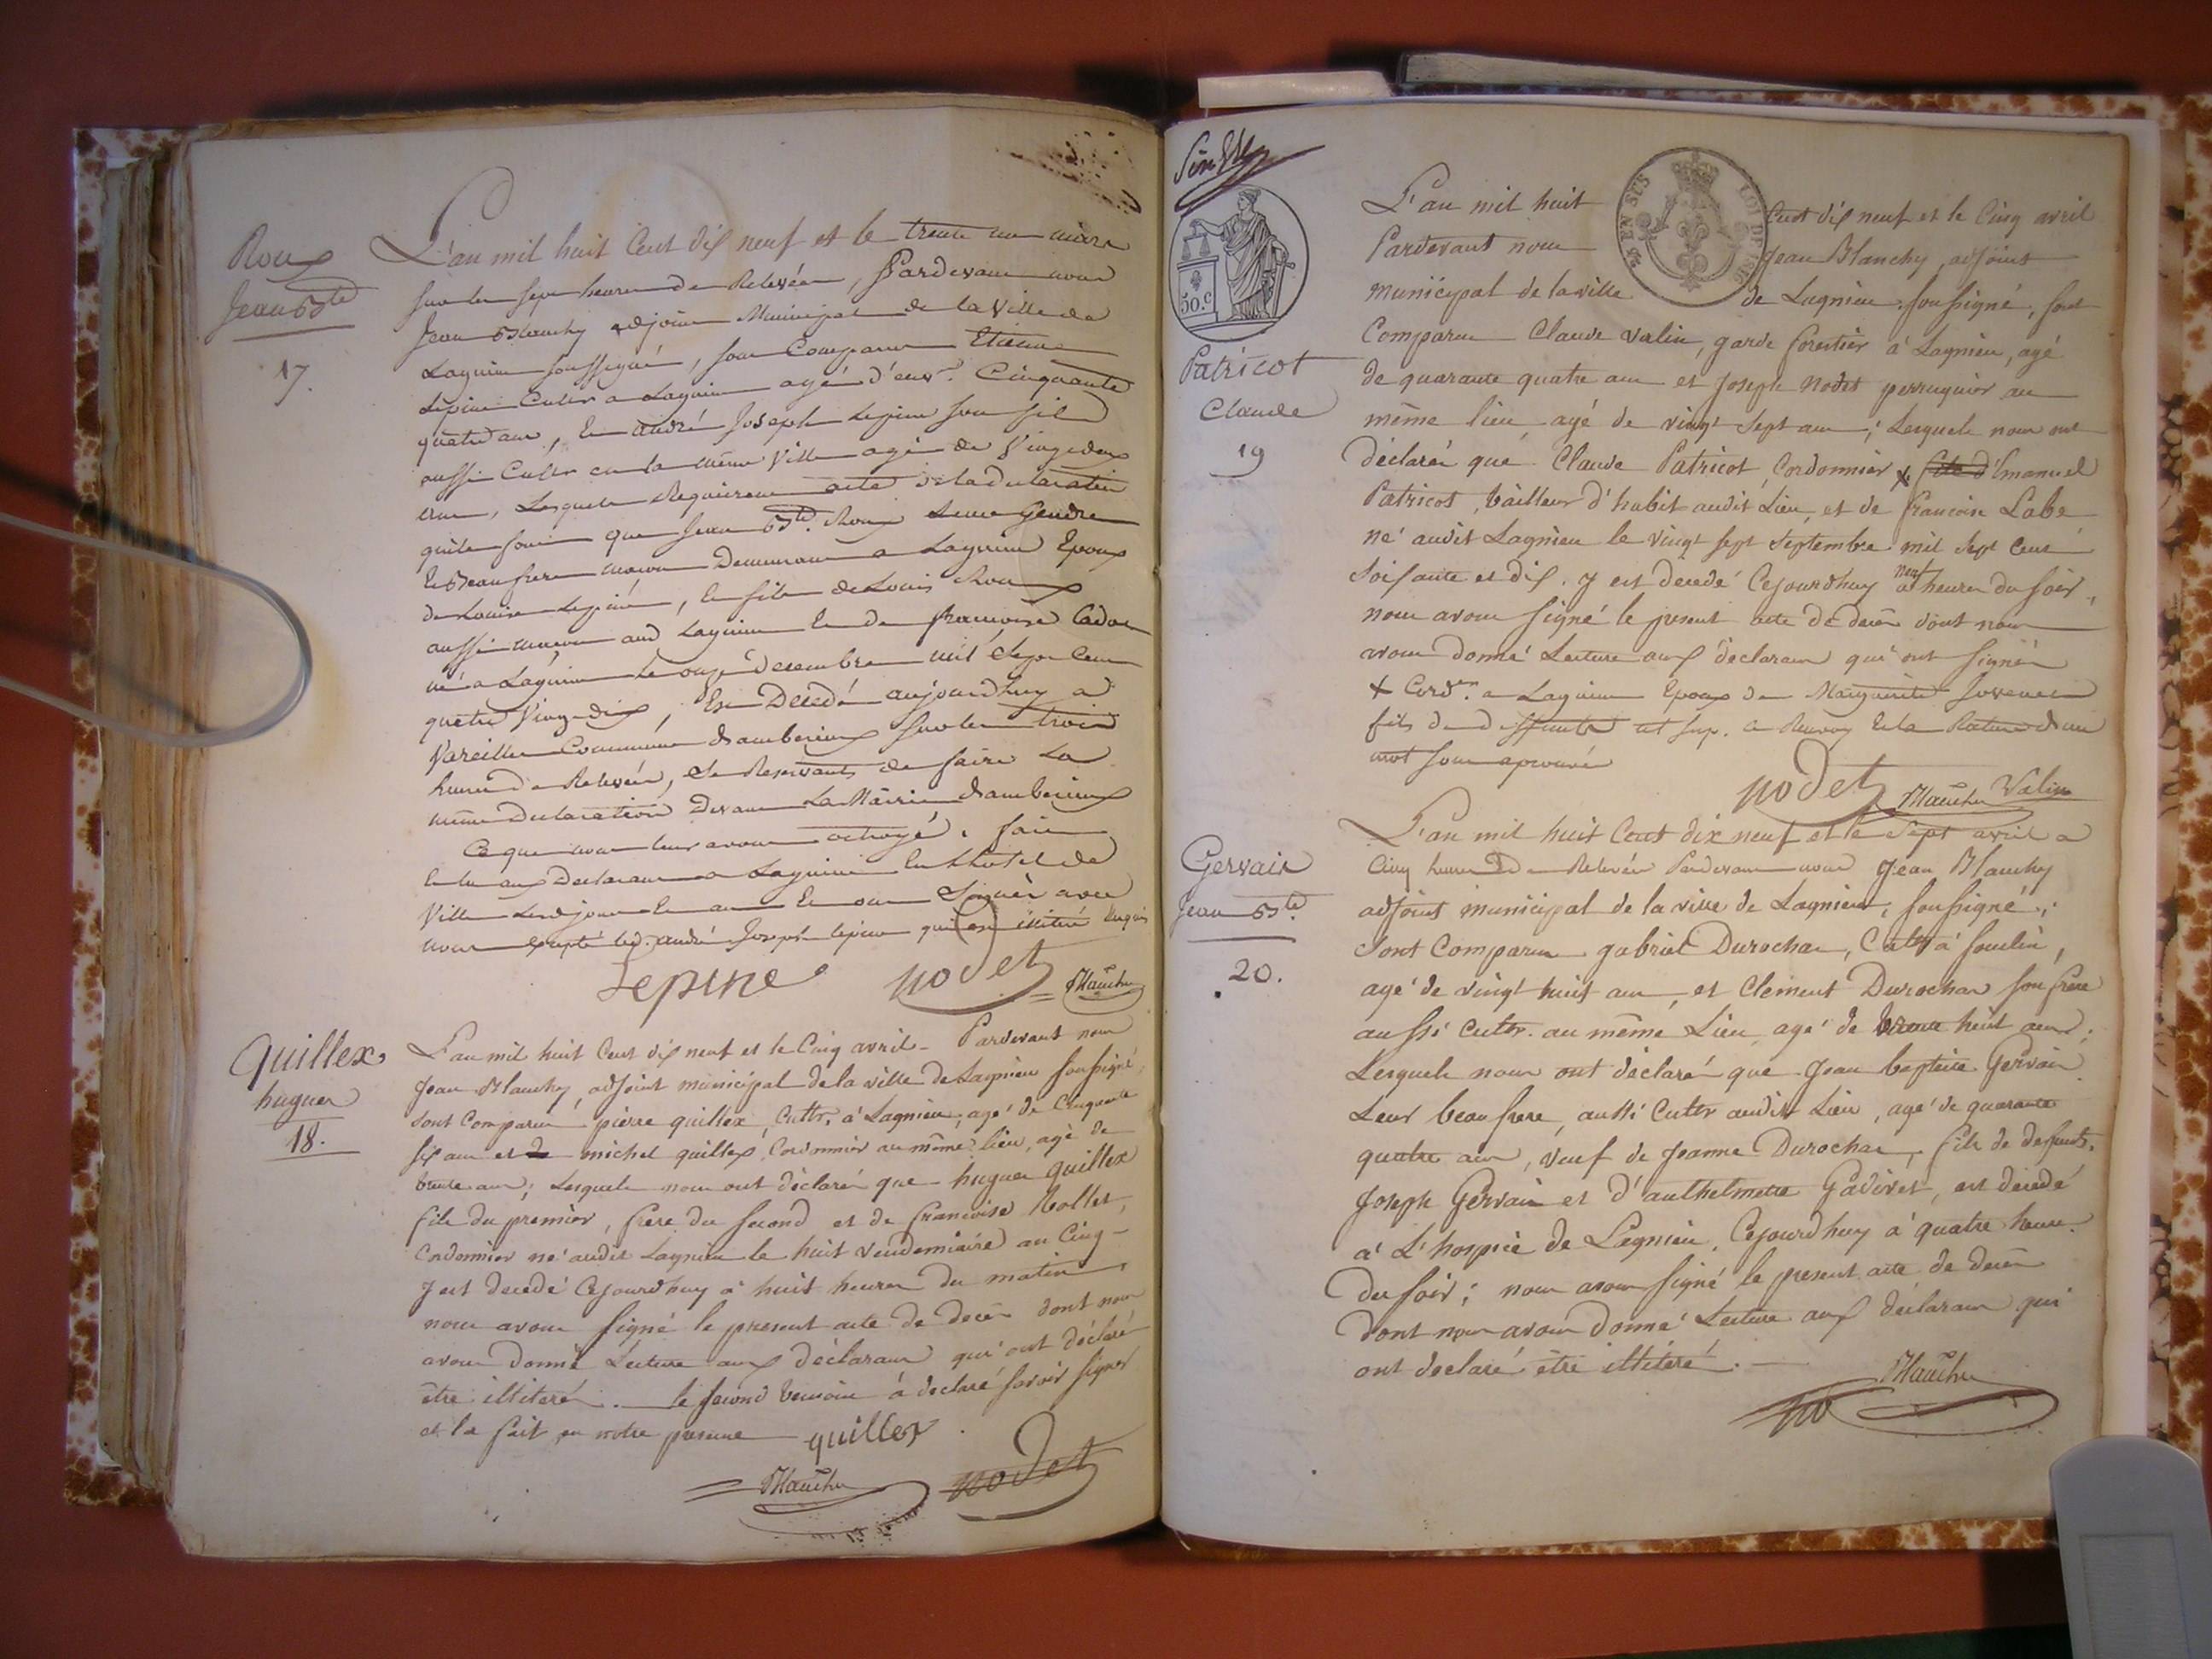 Roux
Jean Bte
17.
L'an mil huit Cent dix neuf et le trente un mars
sur les sept heures de Relevée, Pardevant nous
Jean Blanchy adjoint Municipal de la Ville de
Lagnieu soussigné, sont Comparus Etienne
Lépine Cultr a Lagnieu agé d'envn. Cinquante
quatre ans, Et André Joseph Lepine son fils
aussi Cultr en la même Ville agé de Vingt deux
ans, Lesquels Requièrent acte de la declaration
quils font que Jean Bte. Roux Leur Gendre
Et Beaufrere maçon Demeurant a Lagnieu Epoux
de Louise Lepine, Et fils de Louis Roux
aussi maçon aud Lagnieu Et de francoise
né a Lagnieu Le onze decembre mil Sept Cent
quatre Vingt dix, Est Decedé aujourdhuy a
Vareilles Commune dambérieux sur les trois
heures de Relevée, Se Reservants de faire La
même Declaration Devant La Mairie dambérieux
Ce que nous leur avons octroyé. fait
Et lu aux Declarants a Lagnieu En L'hotel de
Ville Lesd jour Et an Et ont Signés avec
nous excepté led. andré Joseph lepine qui est illiteré
Lepine nodet Blanchy
Quillex
hugues
18.
L'an mil huit Cent dix neuf et le Cinq avril - Pardevant nous
Jean Blanchy, adjoint municipal de la ville de Lagnieu soussigné,
sont Comparus pierre quillex, Cultr. à Lagnieu, agé de Cinquante
six ans et michel quillex, Cordonnier au même lieu, agé de
trente ans; Lesquels nous ont déclarés que hugues Quillex
fils du premier, frere du second et de francoise Rollet,
Cordonnier né audit Lagnieu le huit vendemiaire an Cinq -
y est decedé Cejourdhuy à huit heures du matin,
nous avons signé le present acte de decès dont nous
avons donné Lecture aux déclarans qui ont déclaré
être illiterés. le second temoin à déclaré savoir signer
et l'a fait en notre presence quillex
Blanchy nodet
50.c
EN SUS LOI DE 1816
Patricot
Claude
19
L'an mil huit Cent dix neuf et le Cinq avril
Pardevant nous Jean Blanchy, adjoint
municipal de la ville de Lagnieu soussigné, sont
Comparus Claude Valin, garde forestier à Lagnieu, agé
de quarante quatre ans et Joseph Nodet perruquier au
même lieu, agé de vingt Sept ans; Lesquels nous ont
déclarés que Claude Patricot, Cordonnier + fils d'Emanuel
Patricot, tailleur d'habit audit Lieu, et de francoise Labe
né audit Lagnieu le vingt sept Septembre mil Sept Cent
soixante et dix. y est décedé Cejourdhuy à neuf heures du soir,
nous avons signé le present acte de decès dont nous
avons donné Lecture aux déclarans qui ont signés
+ Cordr. a Lagnieu Epoux de Marguerite
fils de deffunts ut sup. Renvoy Et la Rature d'un
mot sont aprouvés
nodet Blanchy Valin
Gervais
Jean Bte.
20.
L'an mil huit Cent dix neuf et le Sept avril a
Cinq heures De Relevée Pardevant nous Jean Blanchy
adjoint municipal de la ville de Lagnieu, soussigné;
sont Comparus gabriel Durochat, Cultr à souclin,
agé de vingt huit ans, et Clément Durochat son frere
aussi Cultr. au même Lieu, agé de trente huit ans;
Lesquels nous ont déclarés que Jean baptiste Gervais
Leur beaufrere, aussi Cultr audit Lieu, agé de quarante
quatre ans, veuf de Jeanne Durochat, fils de defunts
Joseph Gervais et d'anthelmette Gadivet, est décedé
à L'hospice de Lagnieu, Cejourdhuy à quatre heures
Du soir; nous avons signé le present acte de decès
Dont nous avons donné Lecture aux déclarans qui
ont declaré être illiterés. -
Blanchy